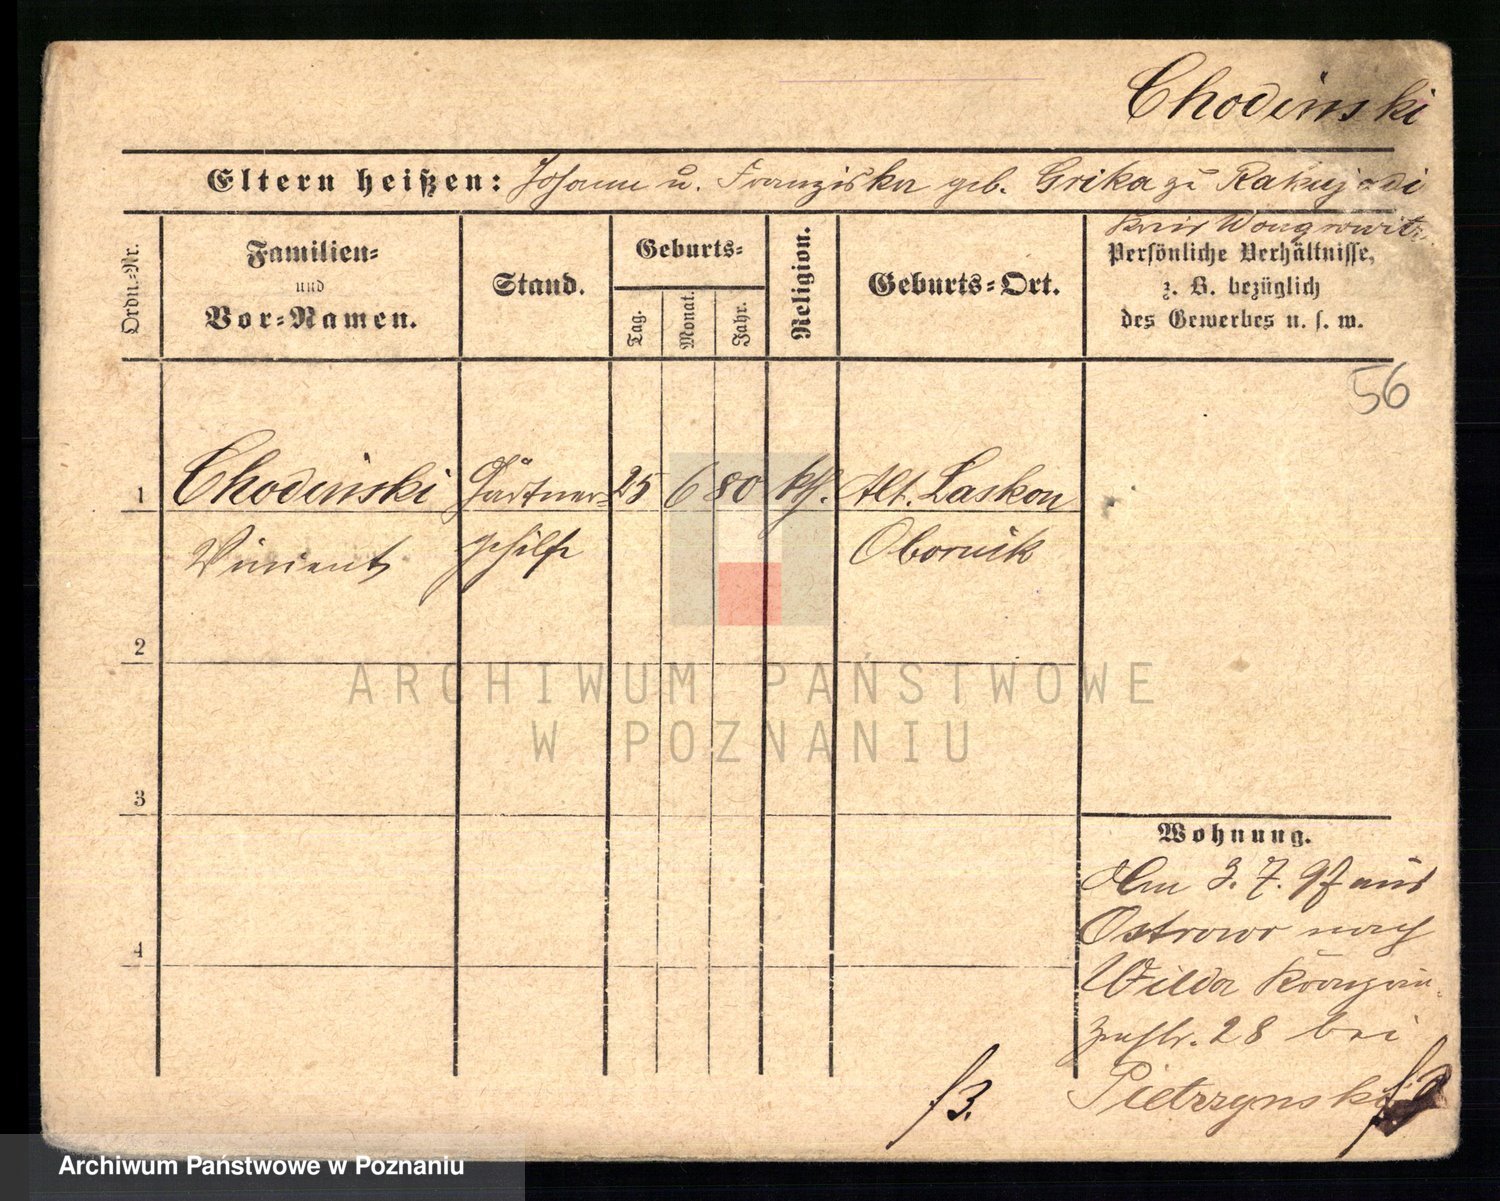 Chodinski
Eltern heißen: Johann u. Franziska geb. Grika zu Rakujadi
Kreis Wongrowitz
Ordn.-Nr.
Familien-
und
Vor-Namen.
Stand.
Geburts-
Tag.
Monat.
Jahr.
Religion.
Geburts-Ort.
Persönliche Verhältnisse,
z. B. bezüglich
des Gewerbes u. s. w.
56
1 Chodinski Gärtner- 25 6 80 kth. Alt. Laskon
Vincent gehilfe Obornik
2
ARCHIWUM PAŃSTWOWE
W POZNANIU
3
Wohnung.
Am 3. 7. 97 aus
Ostrowo nach
Wilda Kronprin-
zenstr. 28 bei
Pietrzynski
4
f3.
Archiwum Państwowe w Poznaniu